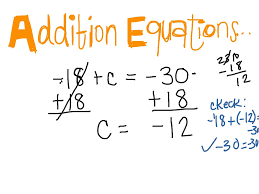 Addition Equations...
-18 + c = -30
+18 +18
c = -12
-18
-12
check:
-18+(-12)=
✓-30=30